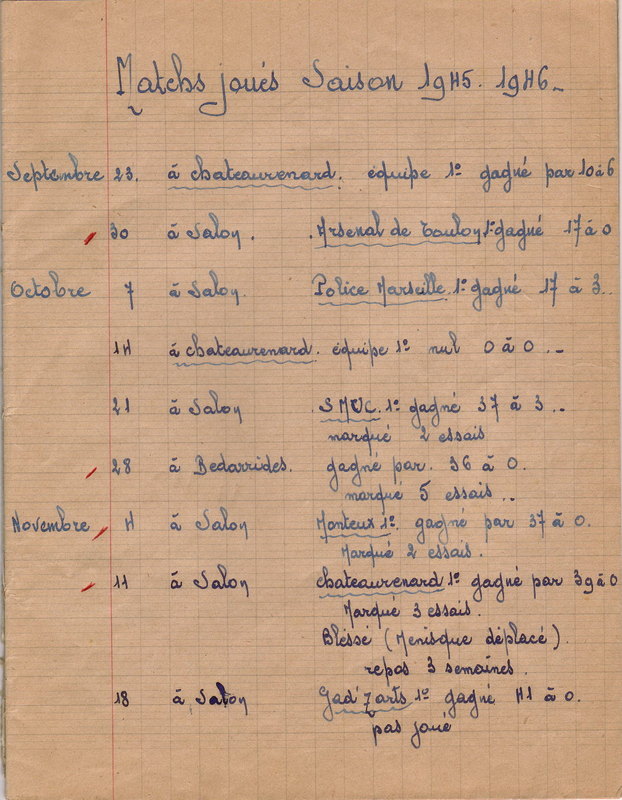 Matchs joués Saison 1945. 1946_
Septembre 23. à chateaurenard. équipe 1º gagné par 10 à 6
30 à Salon. Arsenal de Toulon 1º gagné 17 à 0
Octobre 7 à Salon. Police Marseille. 1º gagné 17 à 3..
14 à chateaurenard. équipe 1º nul 0 à 0 ._
21 à Salon .SMUC. 1º gagné 37 à 3 ..
marqué 2 essais
28 à Bedarrides. gagné par. 36 à 0.
marqué 5 essais ..
Novembre 4 à Salon Monteux 1º. gagné par 37 à 0.
Marqué 2 essais.
11 à Salon chateaurenard 1º gagné par 39 à 0
Marqué 3 essais.
Bléssé (Menisque déplacé).
repos 3 semaines.
18 à Salon Gad'Zarts 1º gagné 41 à 0.
pas joué